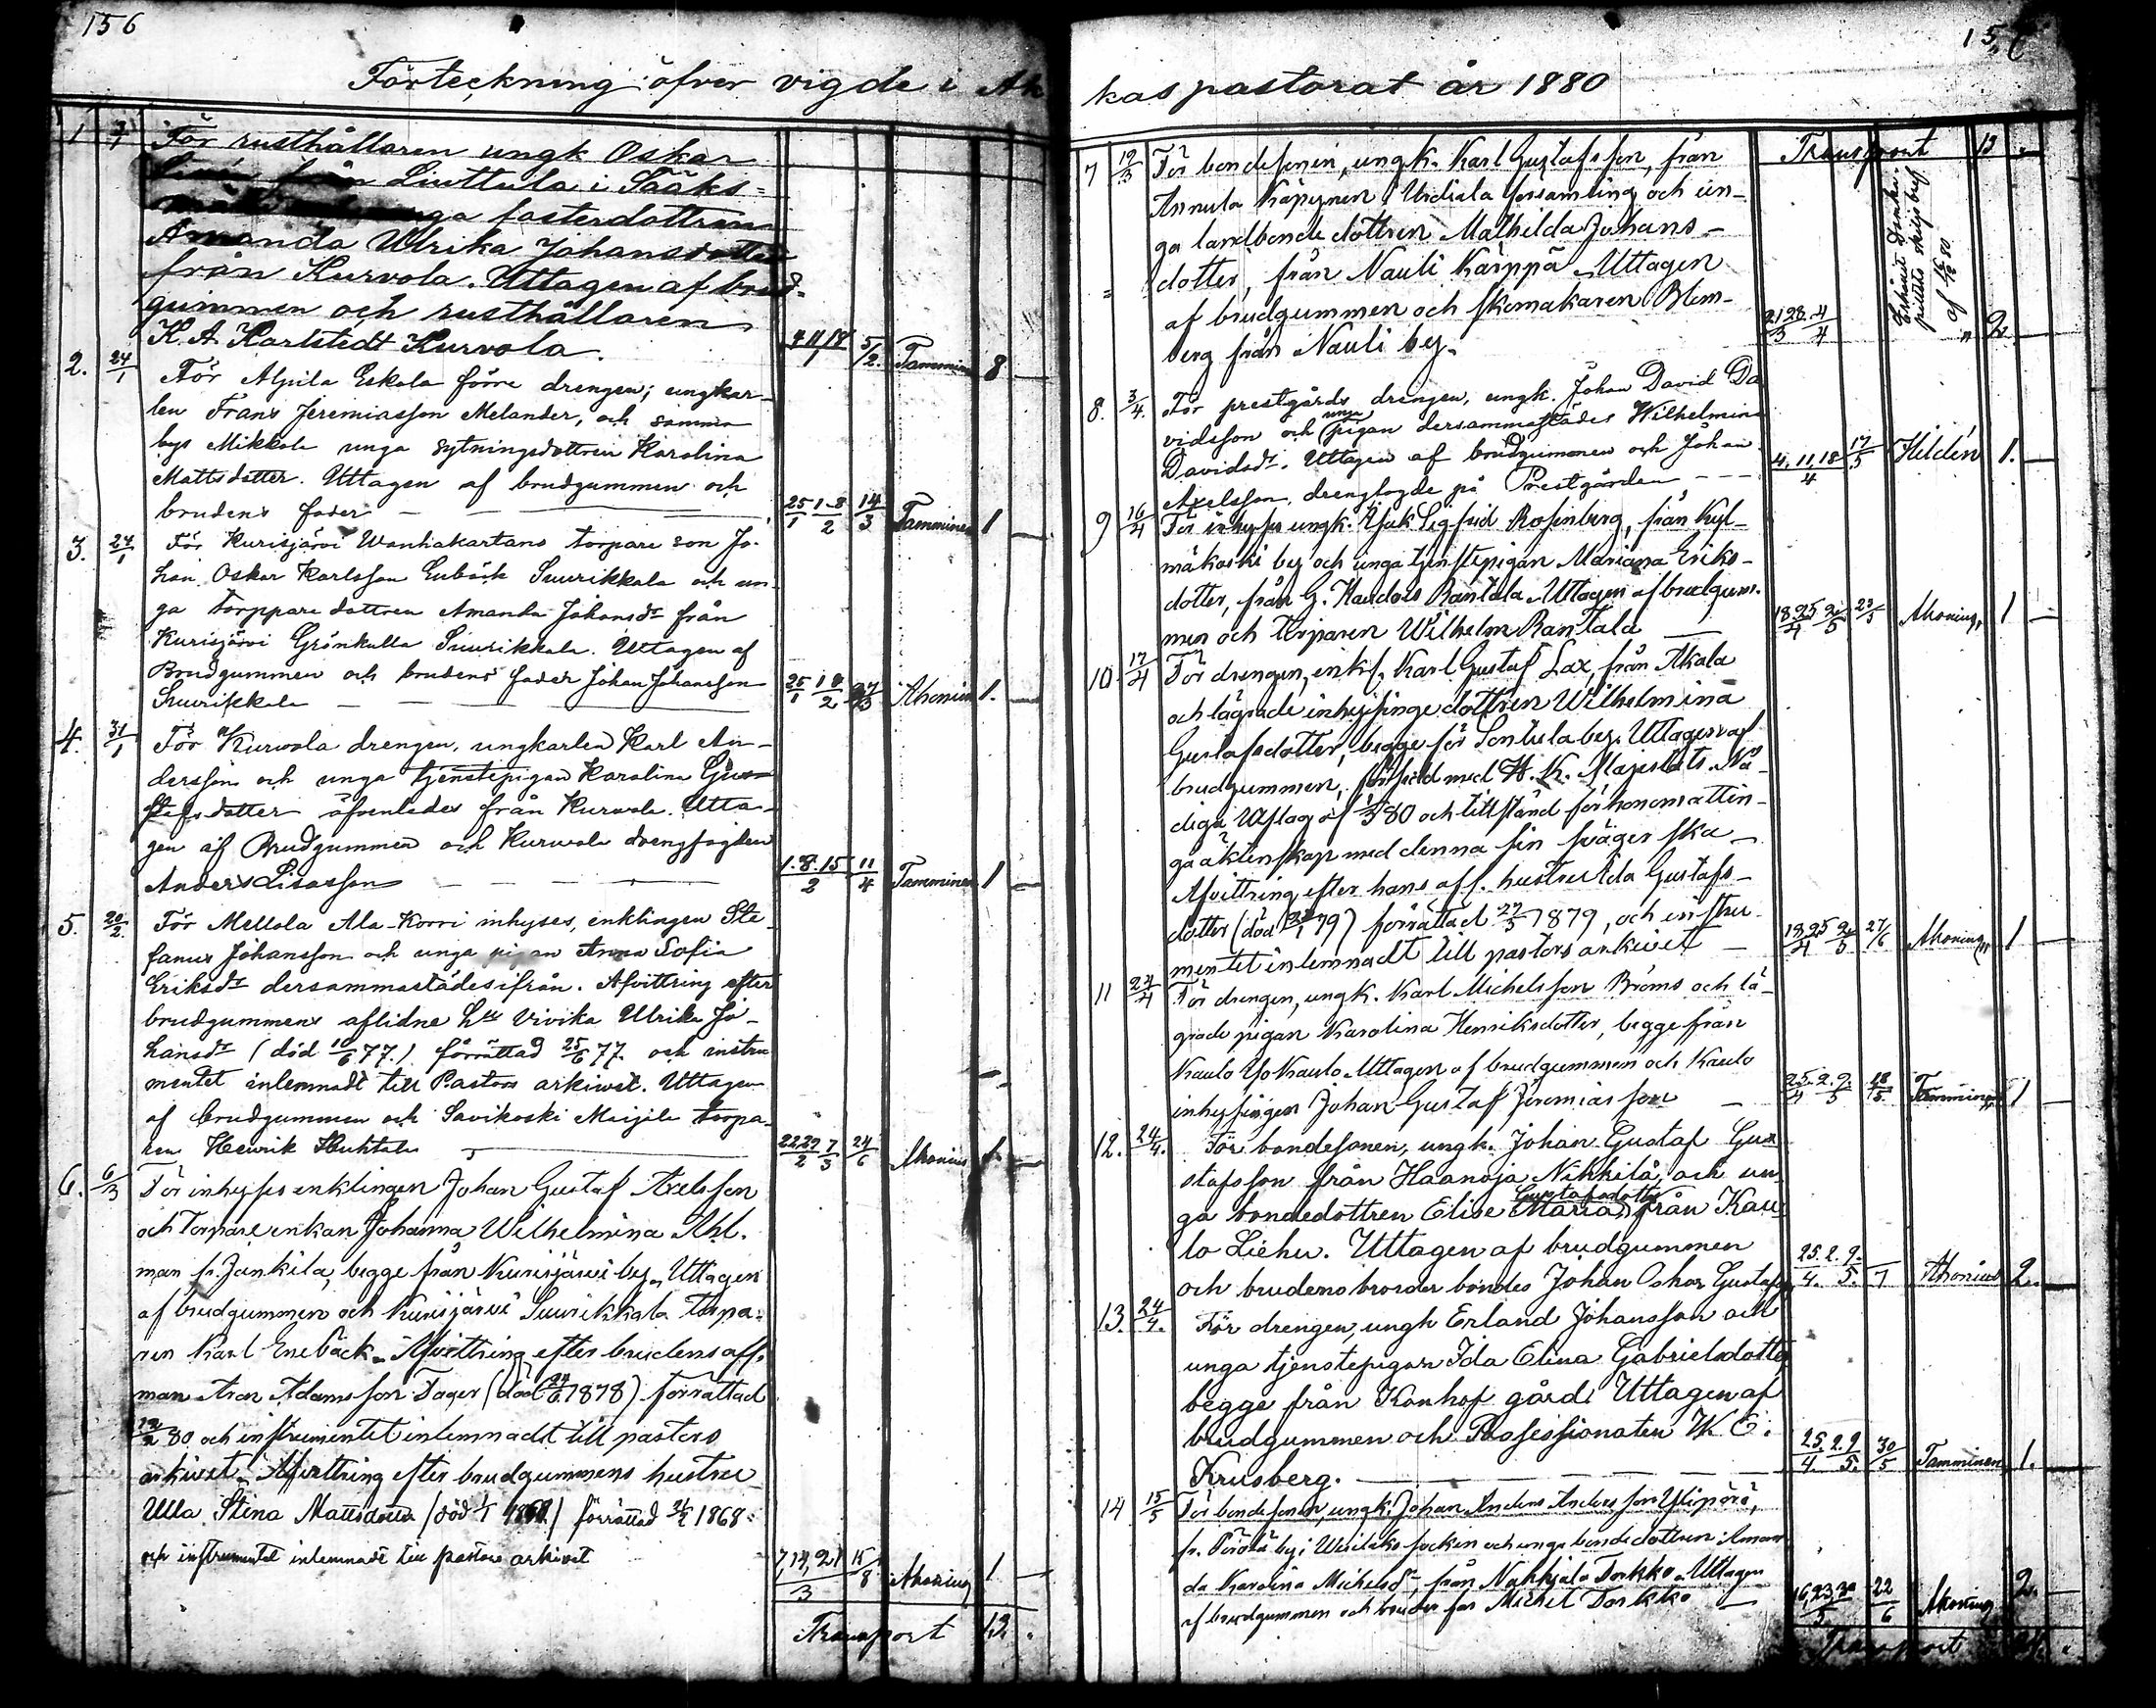 156
Förteckning öfver vigde i Ak
1 7/1 För rusthållaren ungk Oskar
från Liuttula i Sääks=
unga fosterdottren
Amanda Ulrika Johansdotter
från Kurvola. Uttagen af brud=
gummen och rusthållaren
K. A. Karlstedt Kurvola. 4 11 18 5/2. Tamminen 8 —
2. 24/1 För Alpila Eskola förre drengen, ungkar-
len Frans Jeremiasson Melander, och samma
bys Mikkola unga sytningsdottren Karolina
Mattsdotter. Uttagen af brudgummen och
brudens fader — 25/1 1-8/2 14/3 Tamminen 1 —
3. 24/1 För Kurisjärvi Wanhakartano torpare son Jo-
han Oskar Karlsson Enbäck Suurikkala och un-
ga torppare dottren Amanda Johansdr från
Kurisjärvi Grönkulla Suurikkala. Uttagen af
Brudgummen och brudens fader Johan Johansson
Suurikkala — 25/1 1 8/2 27/3 Ahonius 1. —
4. 31/1 För Kurvola drengen, ungkarlen Karl An-
dersson och unga tjenstepigan Karolina Gus-
tafsdotter äfvenledes från Kurvola. Utta-
gen af Brudgummen och Kurvola drengfogden
Anders Lisasson — 1. 8. 15/2 11/4 Tamminen 1 —
5. 20/2. För Mellola Ala-Korri inhyses, enklingen Ste-
fanus Johansson och unga pigan Anna Sofia
Eriksdr dersammastädesifrån. Afvittring efter
brudgummens aflidne hu Vivika Ulrika Jo-
hansdr (död 10/6 77.) förrättad 25/6 77. och instru
mentet inlemnadt till Pastors arkivet. Uttagen
af brudgummen och Savikoski Maijala torpa-
ren Henrik Huhtala — 22 29/2 7/3 24/6 Ahonius 1. —
6. 6/3 För inhyses enklingen Johan Gustaf Axelsson
och Torpare enkan Johanna Wilhelmina Ahl-
man fr. Jankila, begge från Kurisjärvi by. Uttagen
af brudgummen och Kurisjärvi Suurikkala torpa-
ren Karl Enebäck. Afvittring efter brudens afl.
man Aron Adamsson Dager (död 24/6 1878) förrättad
12/2 80 och instrumentet inlemnadt till pastors
arkivet. Afvittring efter brudgummens hustru
Ulla Stina Mattsdotter (död 1/1 1868) förrättad 21/2 1868
och instrumentet inlemnadt till pastors arkivet 7, 14, 21/3 15/8 Ahonius 1 —
Transport 13.
156
kas pastorat år 1880
Transport 13
7 19/3 För bondesonen, ungk. Karl Gustafsson, från
Annula Käpynen i Urdiala församling och un-
ga landbonde dottren Mathilda Johans-
dotter, från Nauli Kärppä. Uttagen
af brudgummen och skomakaren Blom-
berg från Nauli by. 21 28/3 4/4 2. —
8. 3/4. För prestgårds drengen, ungk. Johan David Da
vidsson och unga pigan dersammastädes Wilhelmina
Davidsdr. Uttagen af brudgummen och Johan
Axelsson, drengfogde på Prestgården — 4. 11. 18/4 17/5 Hildén 1. —
9 16/4 För inhyses ungk. Isak Sigfrid Rosenberg, från Kyl-
mäkoski by och unga tjenstepigan Mariana Eriks-
dotter, från G. Kardois Rantala. Uttagen af brudgum-
men och torparen Wilhelm Rantala — 18 25/4 2/5 23/5 Ahonius 1 —
10. 17/4 För drengen, enkl. Karl Gustaf Lax, från Akala
och lägrade inhysinge dottren Wilhelmina
Gustafsdotter, begge för Sontula by. Uttagen af
brudgummen, försedd med H. K. Majestäts Nå-
diga Utslag af 1/3 80 och tillstånd för honom att in-
gå äktenskap med denna sin svägerska
Afvittring efter hans afl. hustru Ida Gustafs-
dotter (död 79) förrättad 27/5 1879, och instru
mentet inlemnadt till pastors arkivet — 18, 25/4 2/5 27/6 Ahonius 1 —
11 24/4 För drengen, ungk. Karl Michelsson Broms och lä-
grade pigan Karolina Henriksdotter, begge från
Kaulo Yo Kaulo. Uttagen af brudgummen och Kaulo
inhysingen Johan Gustaf Jeremiasson — 25/4 2. 9/5 28/5. Tamminen 1 —
12. 24/4. För bondesonen, ungk. Johan Gustaf Gu-
stafsson från Haanoja Nikkilä, och un-
ga bondedottren Elise Maria Gustafsdotter från Kau-
lo Liehu. Uttagen af brudgummen
och brudens broder bonden Johan Oskar Gustafss. 25. 2. 9./4. 5. Ahonius 2. —
13. 24/4. För drengen, ungk Erland Johansson och
unga tjenstepigan Ida Elina Gabrielsdotter
begge från Konhof gård. Uttagen af
brudgummen och Professionaten W. E.
Krusberg. — 25. 2. 9/4. 5. 30/5 Tamminen 1. —
14 15/5 För bondesonen, ungk. Johan Anders Andersson Ylipörö,
fr. Pörölä by i Wesilaks socken och unga bondedottren Aman
da Karolina Michelsdr, från Nahkjala Torkko. Uttagen
af brudgummen och brudens far Michel Torkko — 16, 23, 30/5. 22/6 Ahonius 2. —
Transport